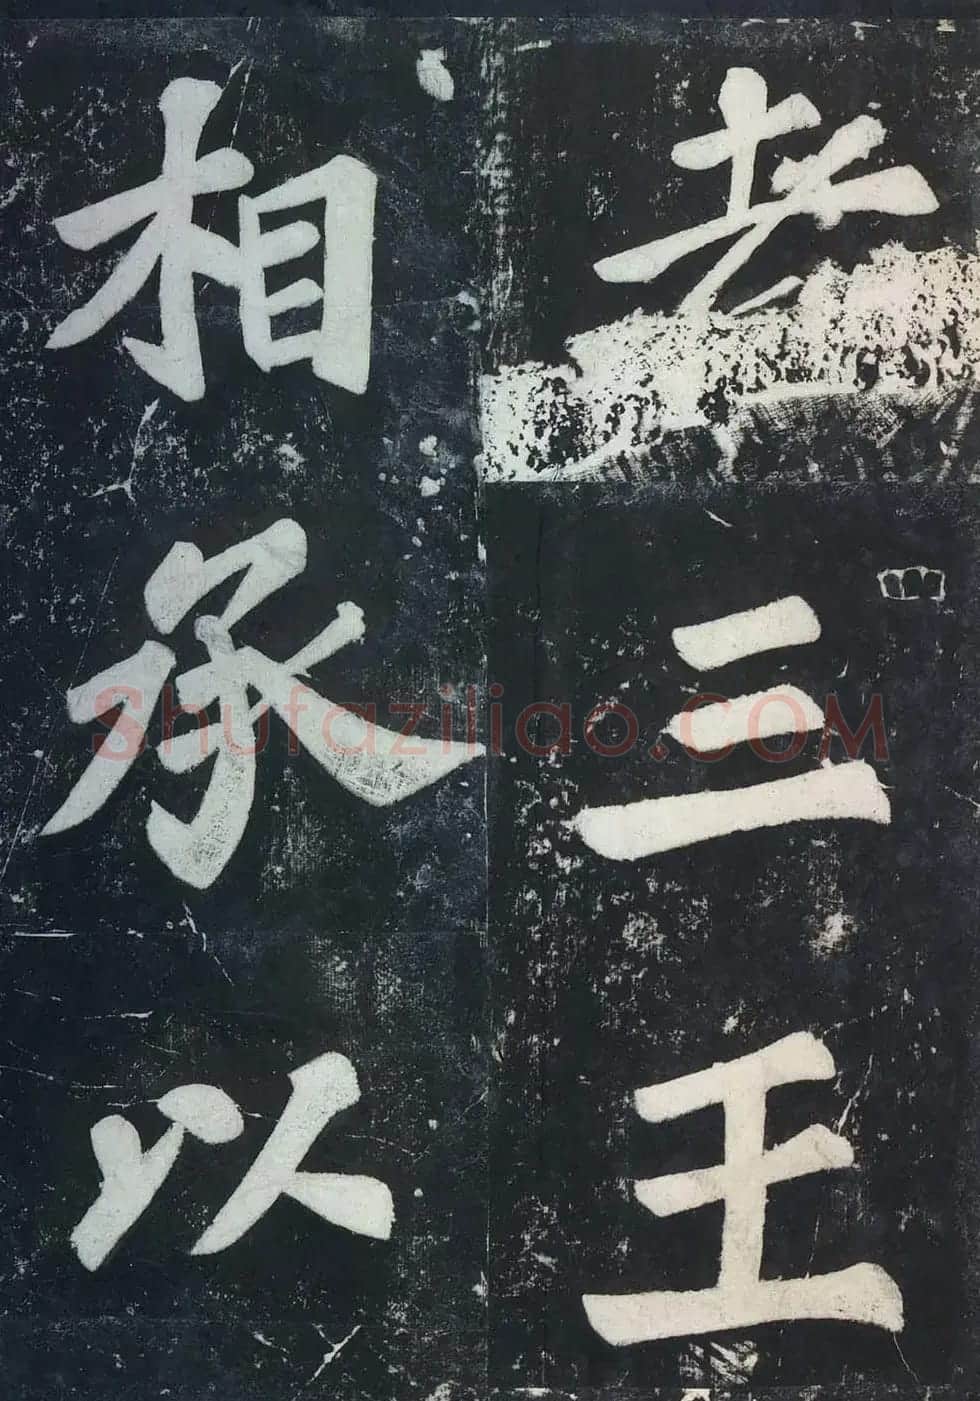 者三王
相承以
Shufaziliao.COM